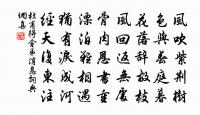 風吹紫荊樹
色與春庭暮
花落辭故枝
風回返無處
骨肉恩書重
漂泊難相遇
猶有淚成河
經天復東注
杜甫得舍弟消息詞典
網